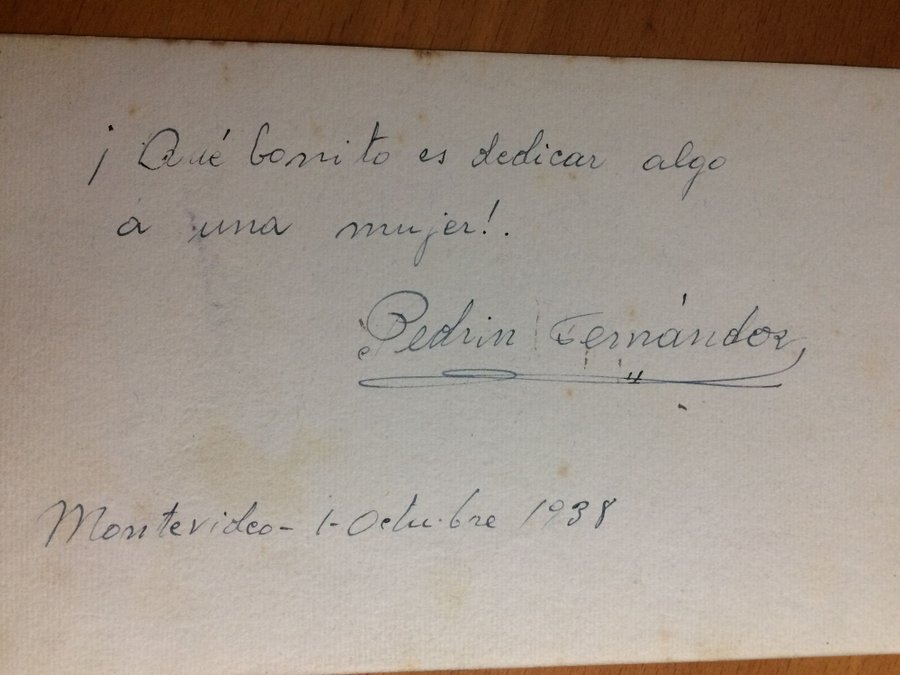 ¡ Qué bonito es dedicar algo
á una mujer!.
Pedrin Fernández
Montevideo - 1 - Octubre 1938